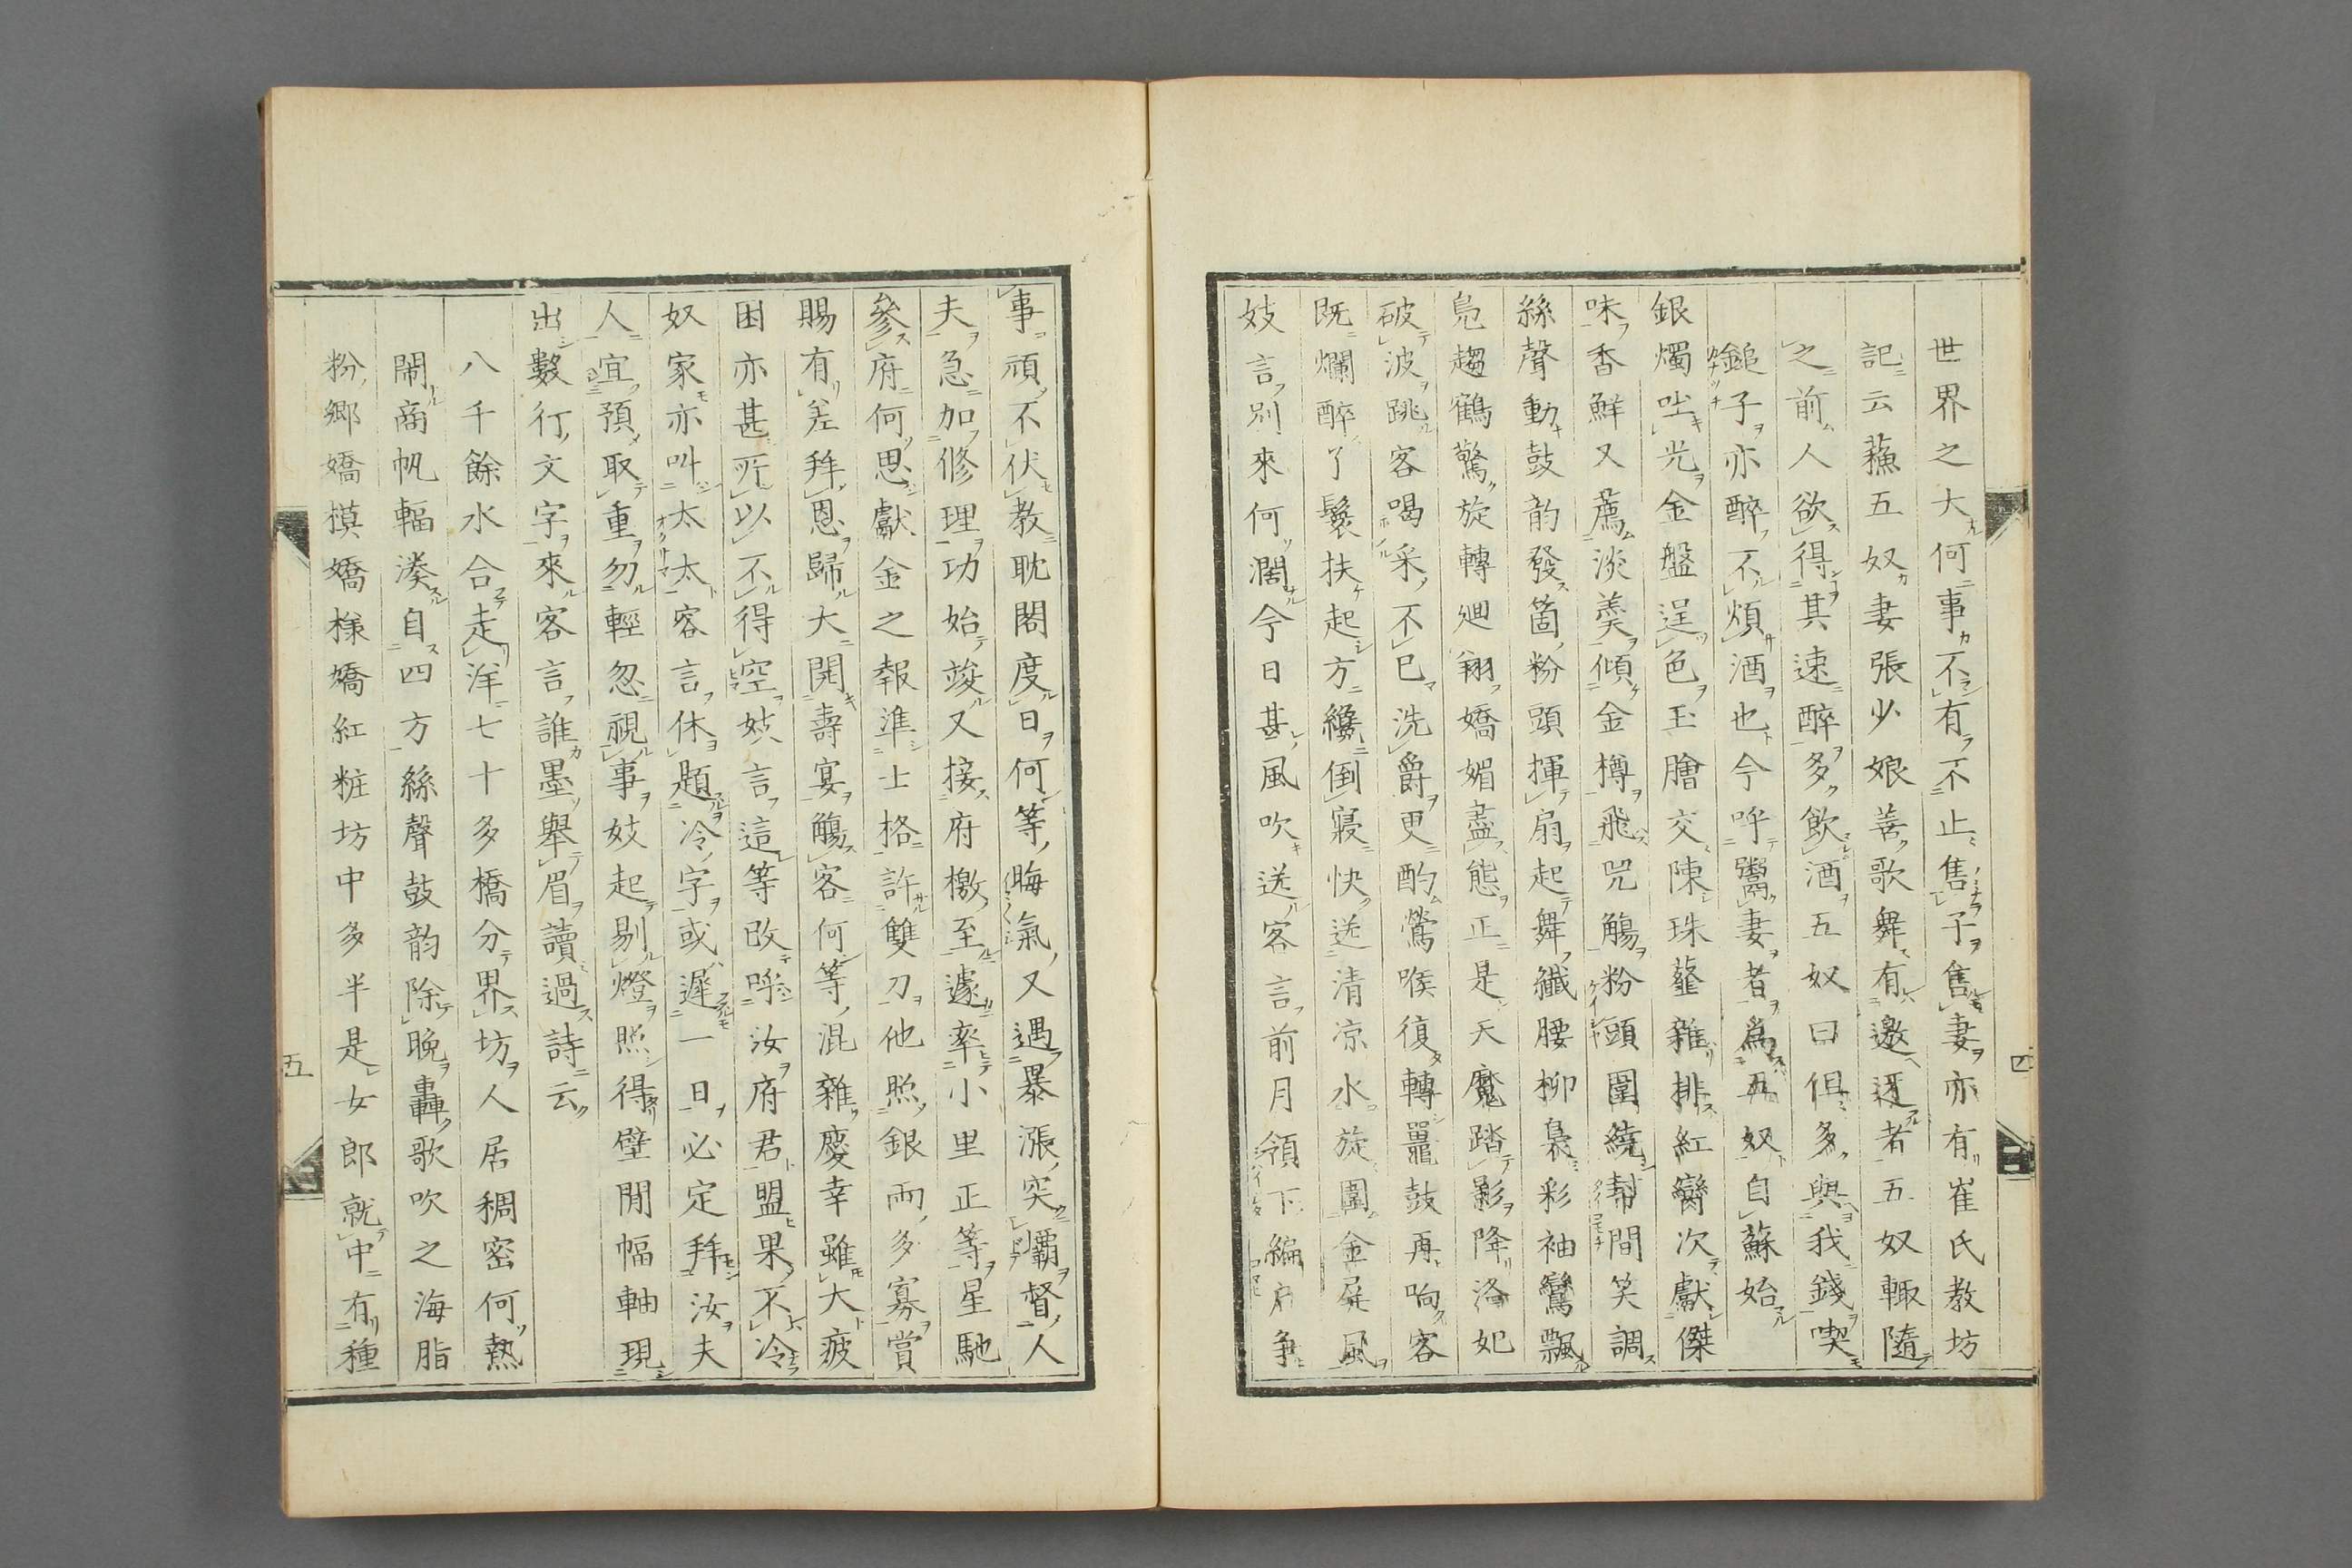 世界之大何事不有不止售子售妻亦有崔氏教坊
記云蘓五奴妻張少娘善歌舞有邀迓者五奴輙隨
之前人欲得其速醉多飲酒五奴曰但多與我錢喫
鎚子亦醉不煩酒也今呼鬻妻者爲五奴自蘇始
銀燭吐光金盤逞色玉膾交陳珠虀雜排紅臠次獻傑
味香鮮又薦淡羮傾金樽飛咒觴粉頭圍繞幇間笑調
絲聲動鼓韵發箇粉頭揮扇起舞纖腰柳裊彩袖鸞飄
鳬趨鶴驚旋轉廻翔嬌媚盡態正是天魔踏影降洛妃
破波跳客喝采不已洗爵更酌鶯喉復轉鼉鼓再响客
既爛醉了鬟扶起方纔倒寢快送清凉水旋圍金屏風
妓言別來何濶今日甚風吹送客言前月領下編戸争
四
事頑不伏教耽閣度日何等晦氣又遇暴漲突壩督人
夫急加修理功始竣又接府檄至遽率小里正等星馳
參府何思獻金之報準上格許雙刀他照銀両多寡賞
賜有差拜恩歸大開壽宴觴客何等混雜慶幸雖大疲
困亦甚所以不得空妓言這等改呼汝府君盟果不冷
奴家亦叫太太容言休題冷字或遲一日必定拜汝夫
人宜預取重勿輕忽視事妓起剔燈照得壁間幅軸現
出數行文字來客言誰墨舉眉讀過詩云
八千餘水合走洋七十多橋分界坊人居稠密何熱
閙商帆輻湊自四方絲聲鼓韵除晩轟歌吹之海脂
粉郷嬌模嬌様嬌紅粧坊中多半是女郎就中有種
五